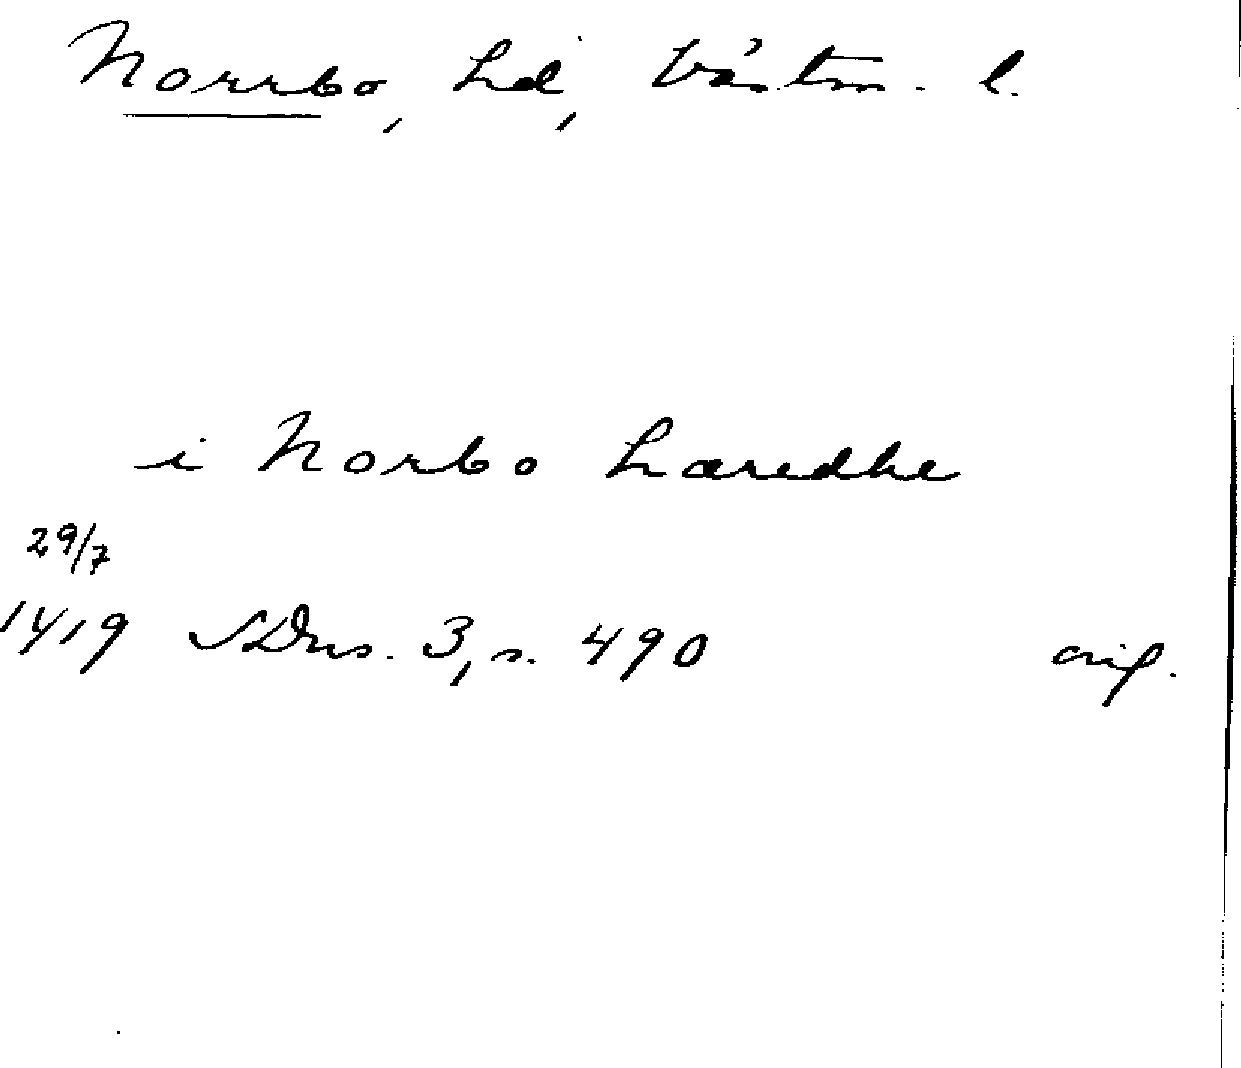 Norrbo, hd, Västm. l.
i Norbo hæredhe
29/7
1419 SDns. 3, s. 490 orig.